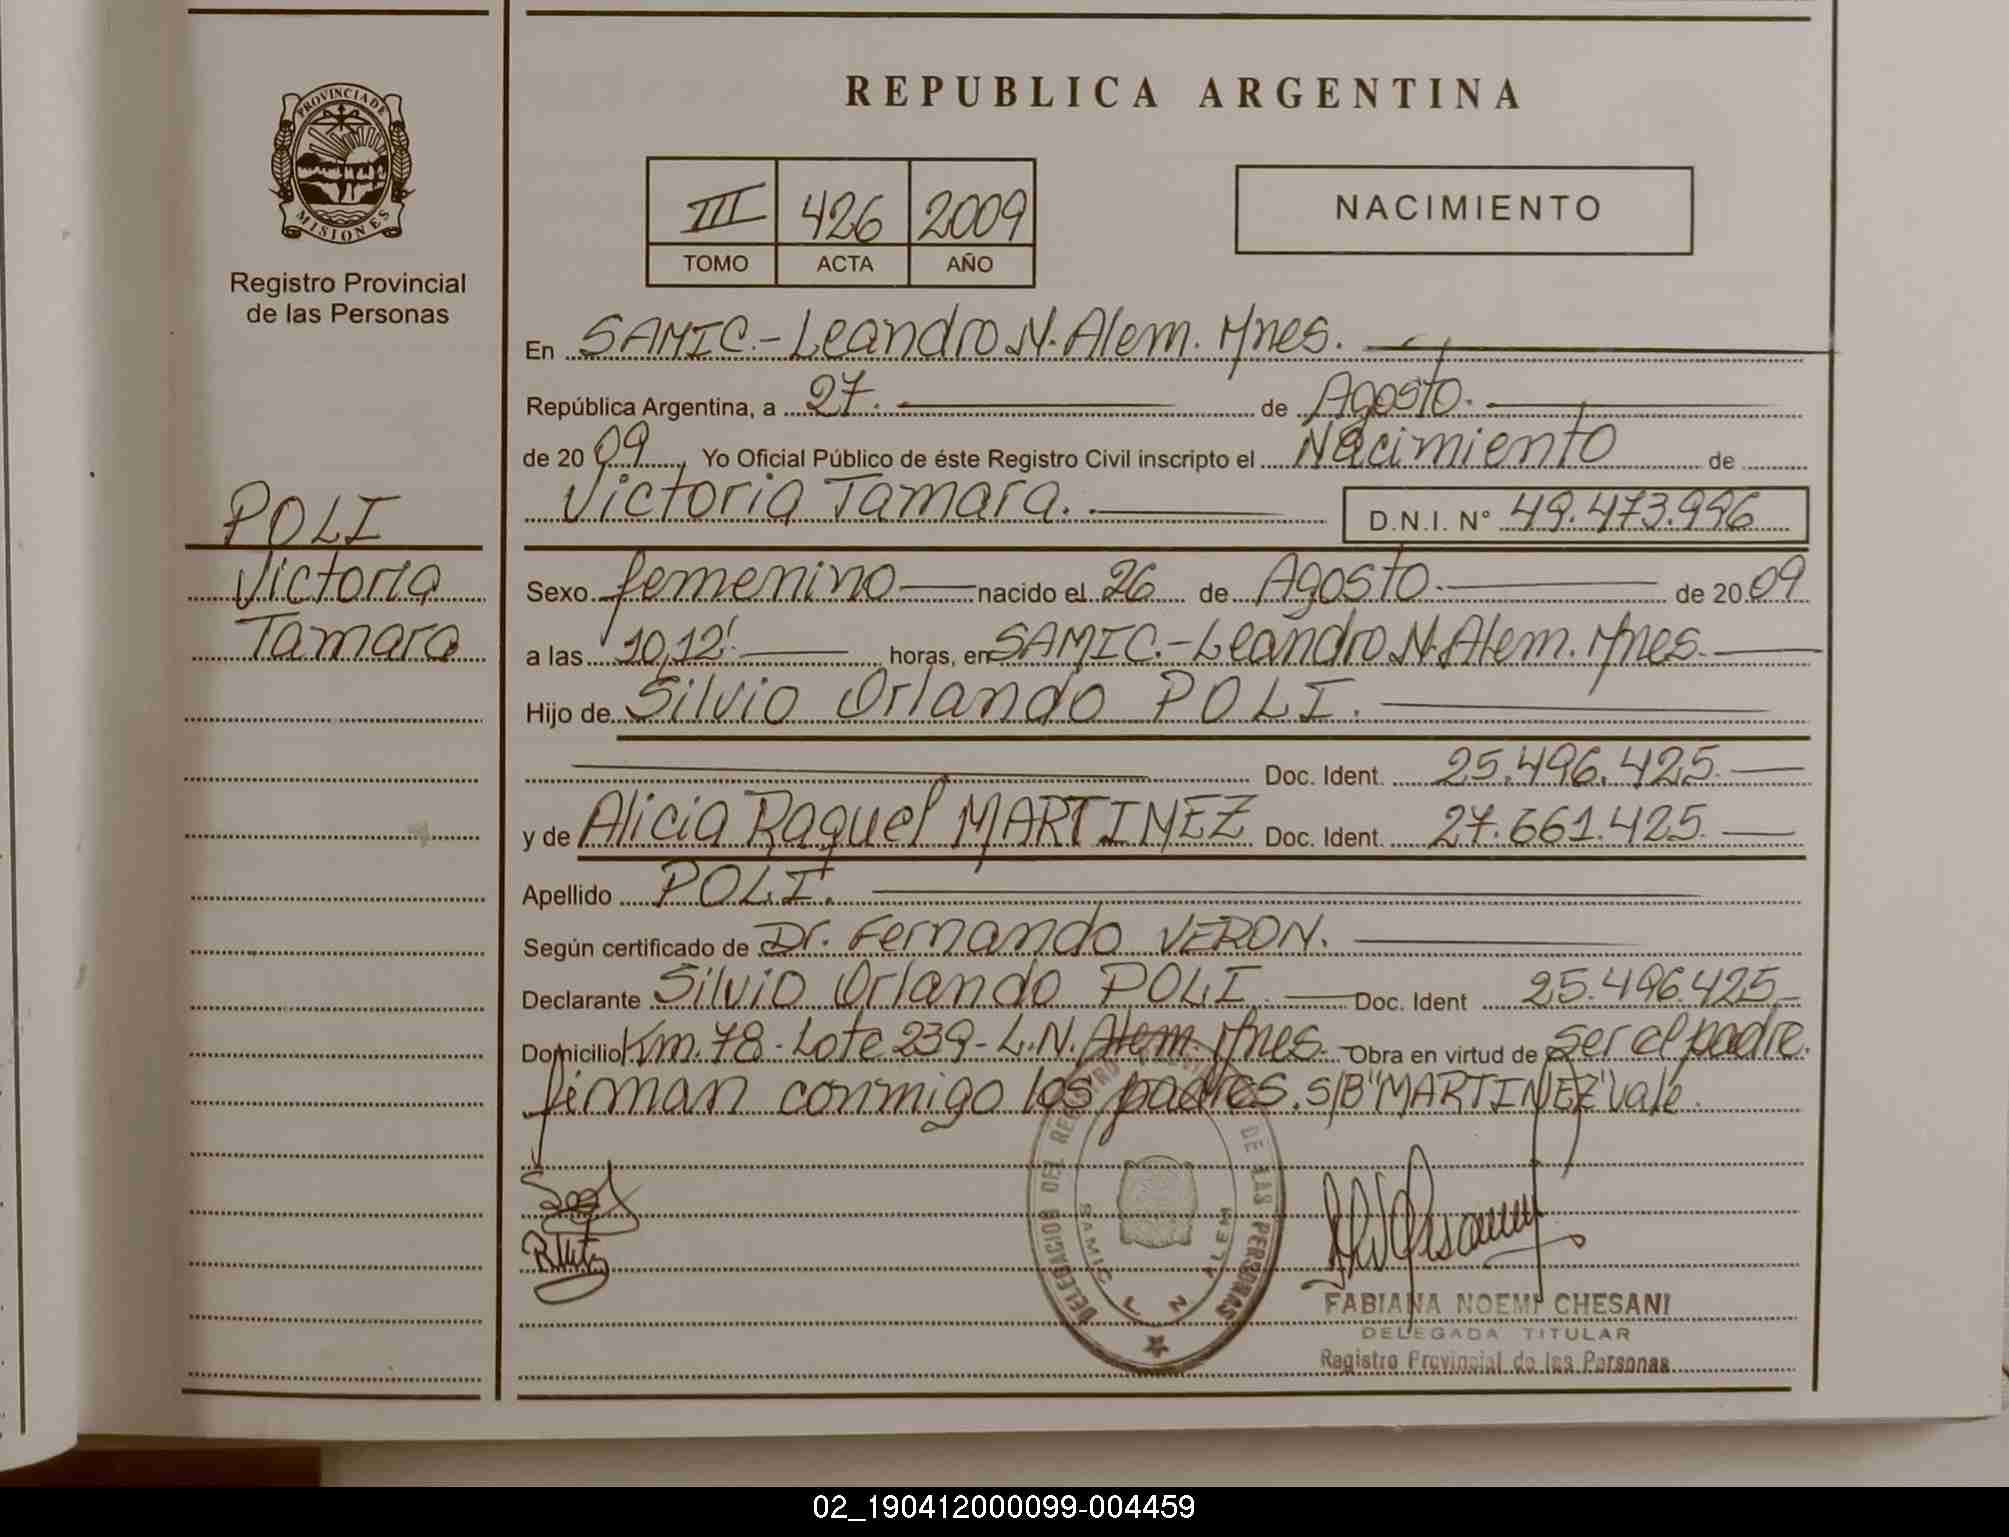 PROVINCIA DE
MISIONES
Registro Provincial
de las Personas
POLI
Victoria
Tamara
REPUBLICA ARGENTINA
III 426 2009
TOMO ACTA AÑO
NACIMIENTO
En SAMIC.-Leandro N. Alem. Mnes.
República Argentina, a 27. de Agosto.
de 20 09, Yo Oficial Público de éste Registro Civil inscripto el Nacimiento de
Victoria Tamara. D.N.I. N° 49.473.996
Sexo femenino nacido el 26 de Agosto. de 20 09
a las 10,12' horas, en SAMIC.-Leandro N. Alem. Mnes.
Hijo de Silvio Orlando POLI.
Doc. Ident. 25.496.425.
y de Alicia Raquel MARTINEZ Doc. Ident. 27.661.425.
Apellido POLI.
Según certificado de Dr. Fernando VERON.
Declarante Silvio Orlando POLI. Doc. Ident 25.496.425
Domicilio Km. 78 - Lote 239 - L.N. Alem. Mnes. Obra en virtud de ser el padre.
firman conmigo los padres. S/B "MARTINEZ" Vale.
DELEGACION DEL REGISTRO PROVINCIAL DE LAS PERSONAS
SAMIC L N ALEM
FABIANA NOEMI CHESANI
DELEGADA TITULAR
Registro Provincial de las Personas
02_190412000099-004459